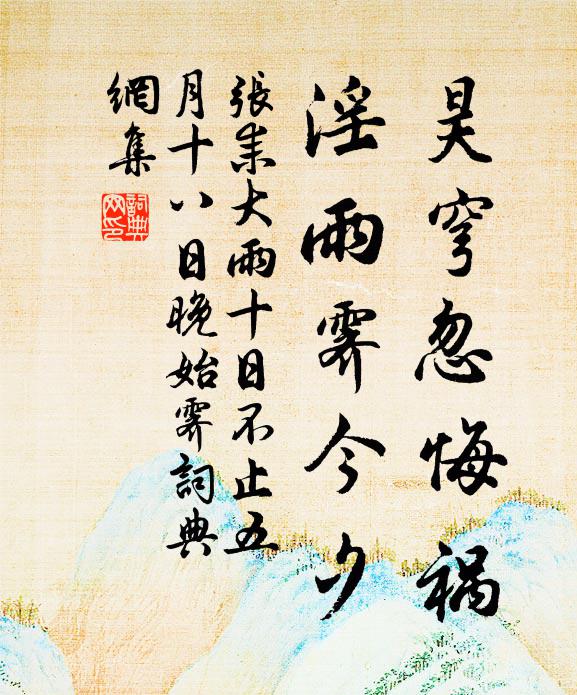 昊穹忽悔祸
淫雨霁今夕
張耒大雨十日不止五
月十八日晚始霁詞典
網集
詞典
网印